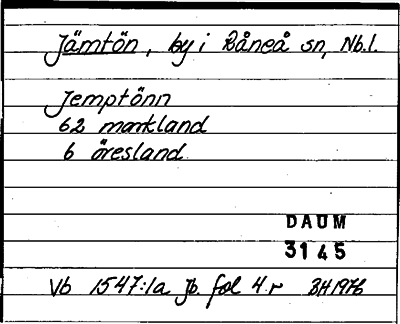 Jämtön, by i Råneå sn, Nb.l.
Jemptönn
62 markland
6 öresland
DAUM
3145
Vb 1547:1a Jb. fol 4 r BH 1976